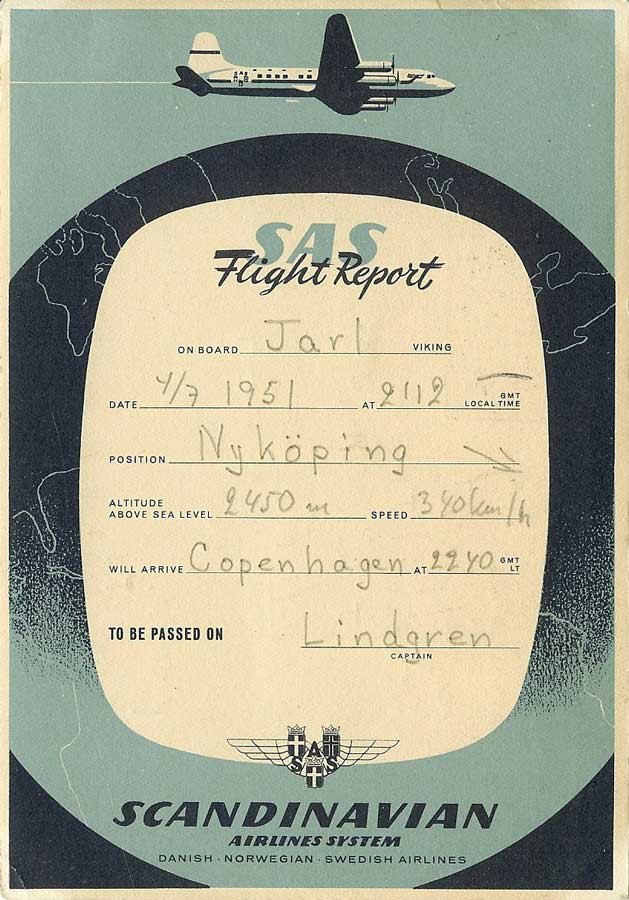 SAS
Flight Report
ON BOARD Jarl VIKING
DATE 4/7 1951 AT 2112 GMT LOCAL TIME
POSITION Nyköping
ALTITUDE ABOVE SEA LEVEL 2450 m SPEED 340 km/h
WILL ARRIVE Copenhagen AT 2240 GMT LT
TO BE PASSED ON Lindgren
CAPTAIN
SAS
SCANDINAVIAN
AIRLINES SYSTEM
DANISH · NORWEGIAN · SWEDISH AIRLINES